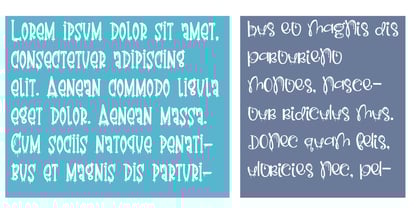 Lorem ipsum dolor sit amet,
consectetuer adipiscing
elit. Aenean commodo ligula
eget dolor. Aenean massa.
Cum sociis natoque penati-
bus et magnis dis parturi-
bus et magnis dis
parturient
montes, nasce-
tur ridiculus mus.
Donec quam felis,
ultricies nec, pel-